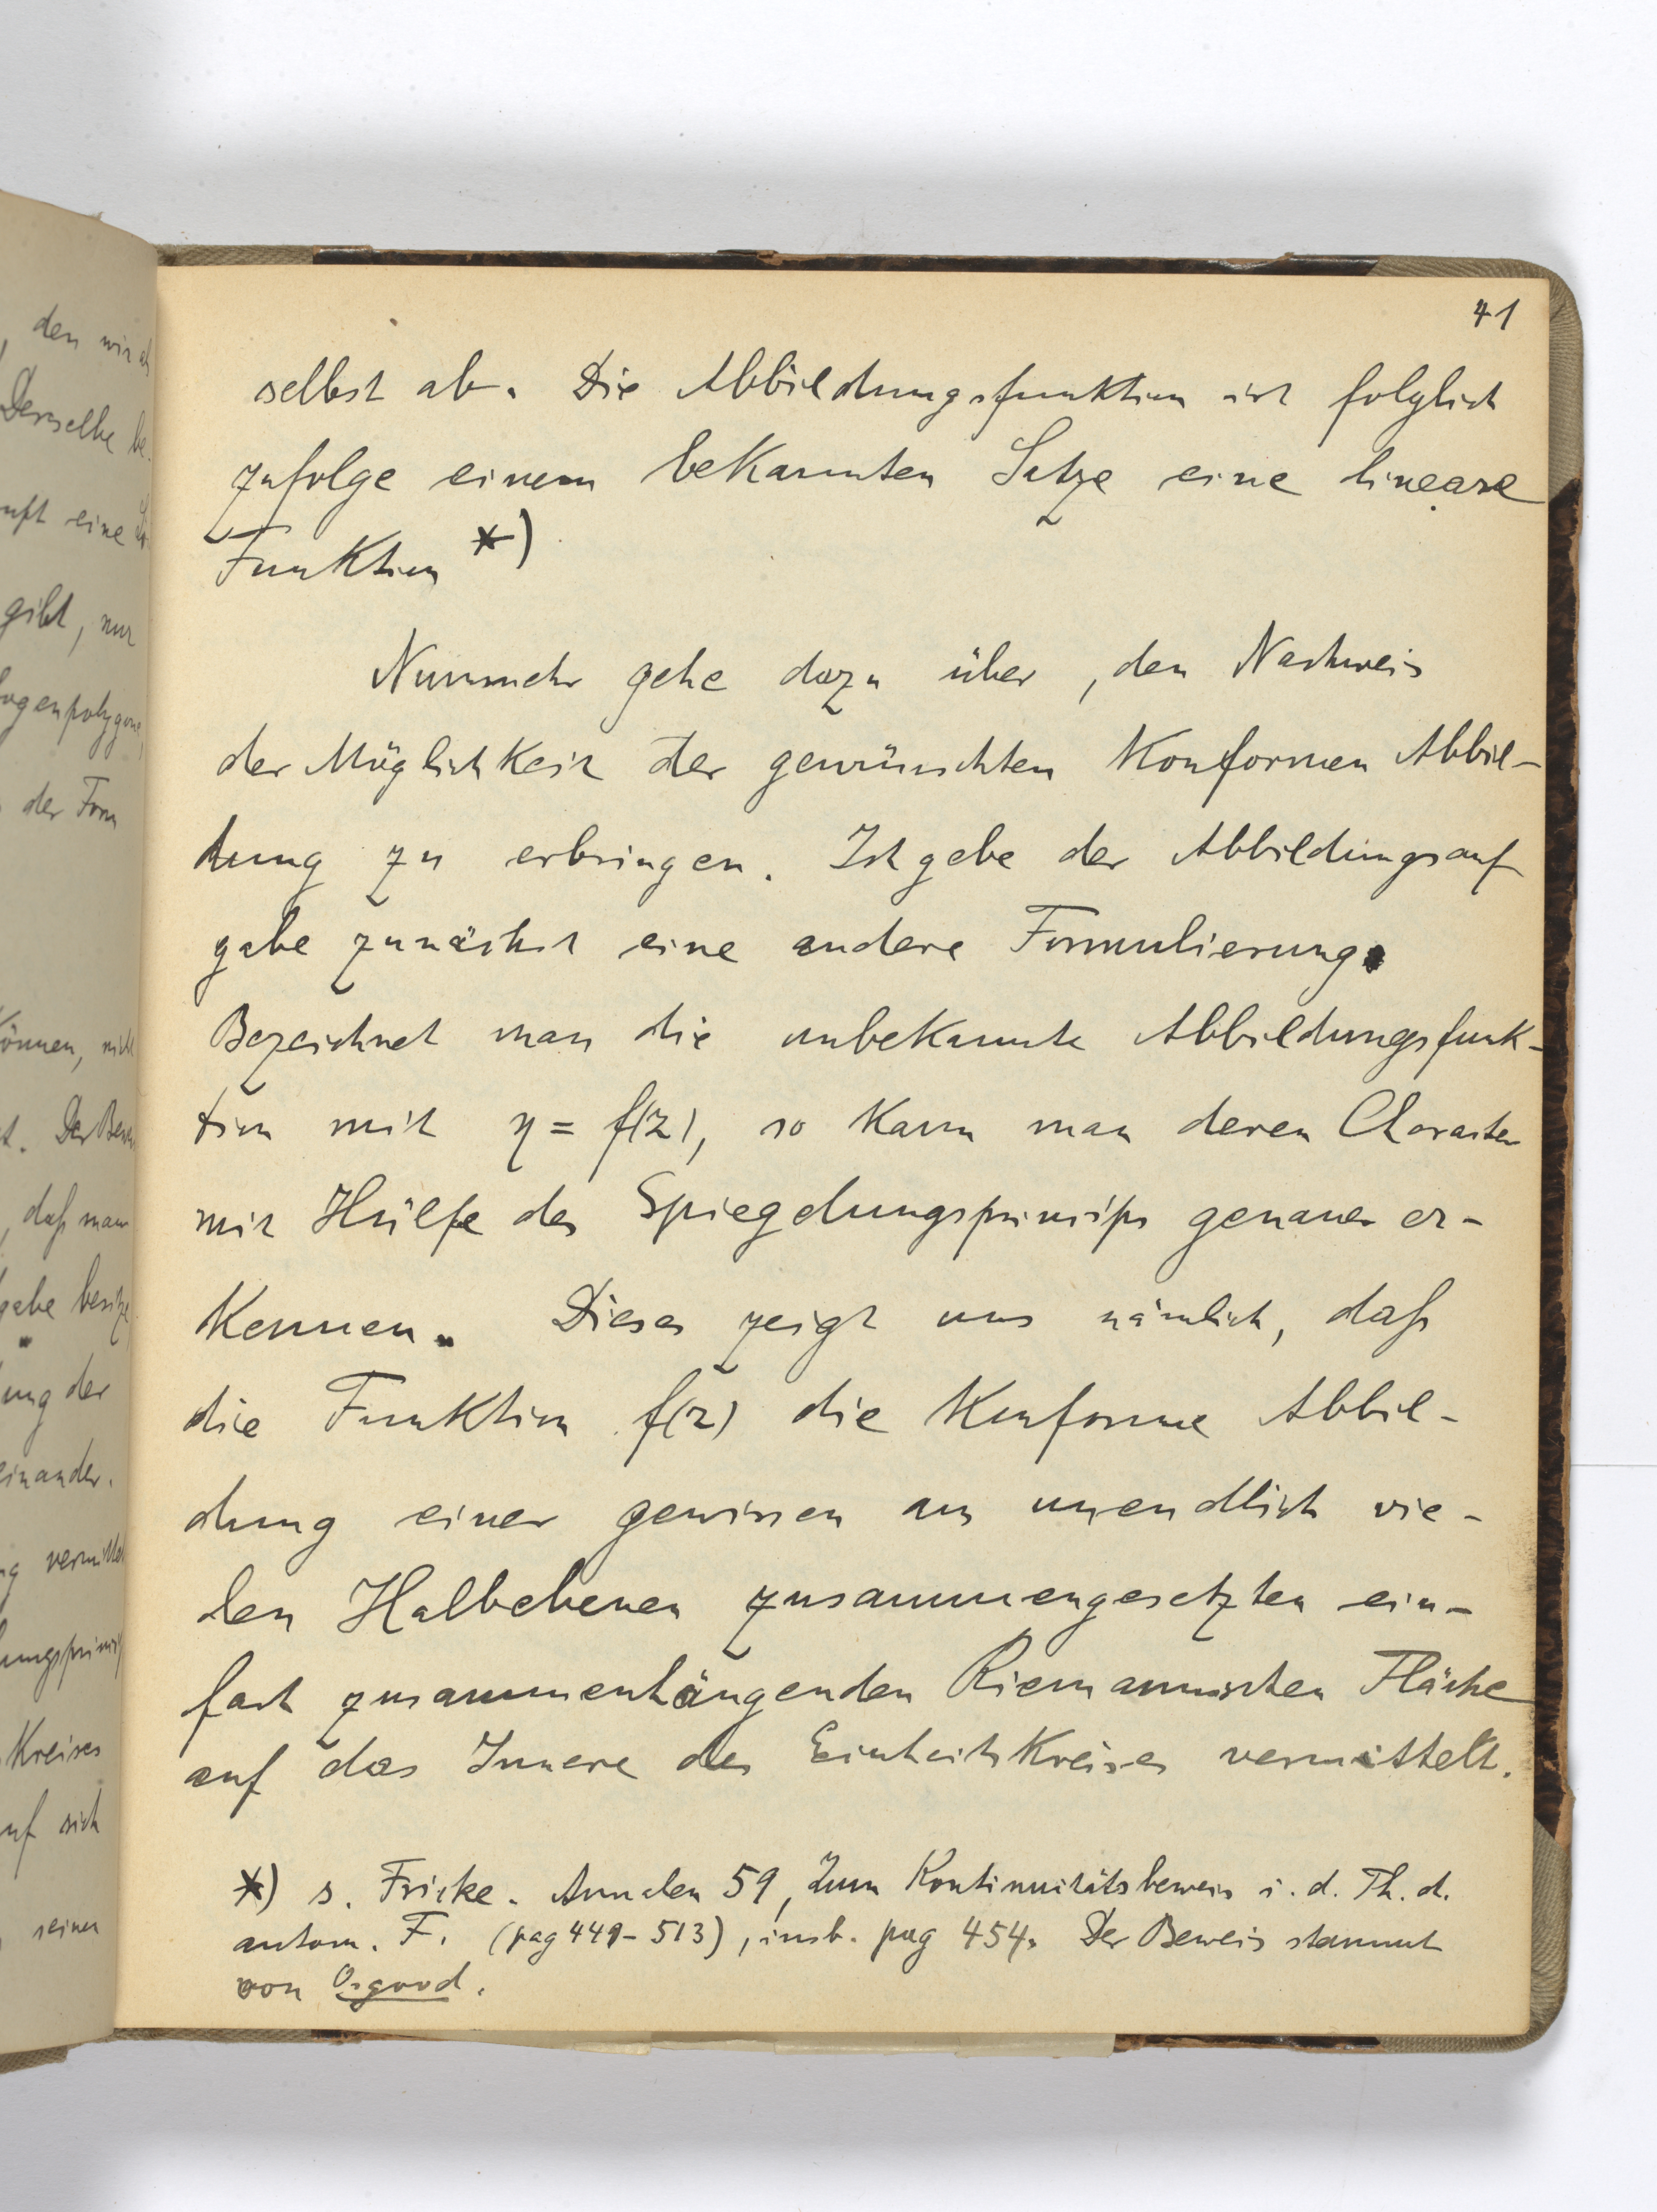 , den wir als
Derselbe be-
eine
gibt, nur
ogenpolygone,
der Form
können, nicht
, daß man
gabe besitze
ung der
einander.
Kreises
uf sich
seinen
41
selbst ab. Die Abbildungsfunktion ist folglich
zufolge einem bekannten Satze eine lineare
Funktion *)
Nunmehr gehe dazu über, den Nachweis
der Möglichkeit der gewünschten konformen Abbil-
dung zu erbringen. Ich gebe der Abbildungsauf
gabe zunächst eine andere Formulierung.
Bezeichnet man die unbekannte Abbildungsfunk-
tion mit η = f(z), so kann man deren Charakter
mit Hülfe des Spiegelungsprinzips genauer er-
kennen. Dieses zeigt uns nämlich, daß
die Funktion f(z) die konforme Abbil-
dung einer gewissen aus unendlich vie-
len Halbebenen zusammengesetzten ein-
fach zusammenhängenden Riemannschen Fläche
auf das Innere des Einheitskreises vermittelt.
*) s. Fricke. Annalen 59, Zum Kontinuitätsbeweis i. d. Th. d.
autom. F. (pag 449-513), insb. pag 454. Der Beweis stammt
von Osgood.